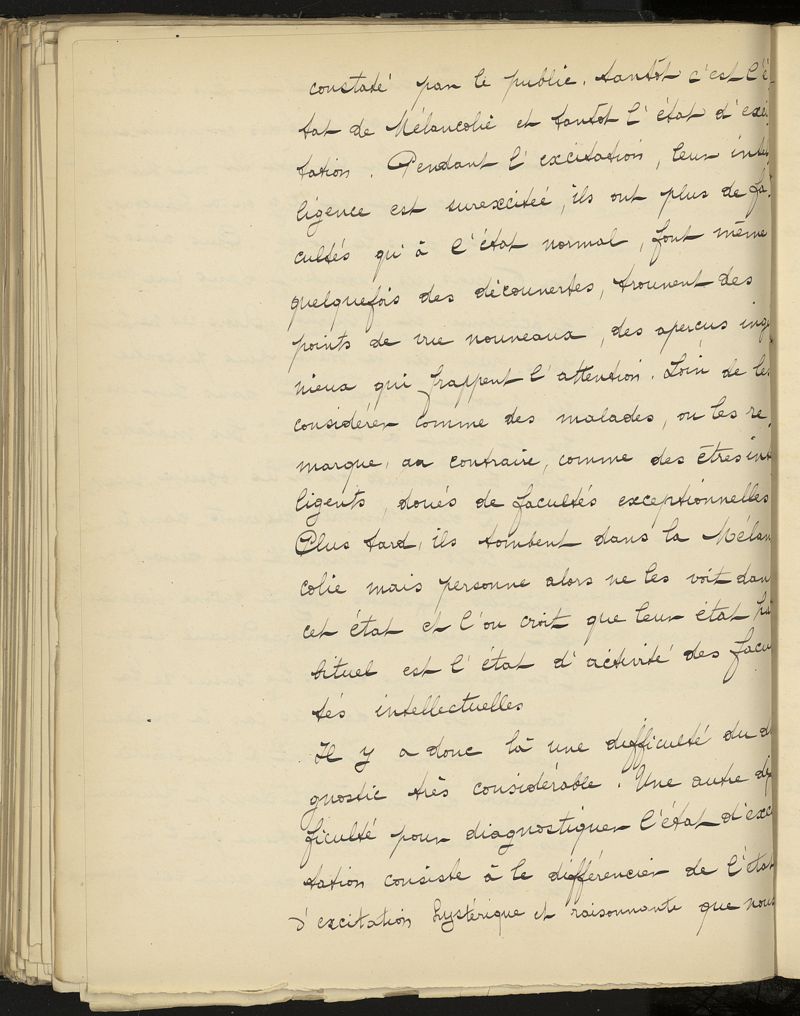 constaté par le public. tantôt c'est l'é
tat de Mélancolie et tantôt l'état d'exci
tation. Pendant l'excitation, leur intel
ligence est surexcitée, ils ont plus de fa
cultés qu'à l'état normal, font même
quelquefois des découvertes, trouvent des
points de vue nouveaux, des aperçus ingé
nieux qui frappent l'attention. Loin de les
considérer comme des malades, on les re
marque, au contraire, comme des êtres int
ligents, doués de facultés exceptionnelles
Plus tard, ils tombent dans la Mélan
colie mais personne alors ne les voit dan
cet état et l'on croit que leur état ha
bituel est l'état d'activité des facu
tés intellectuelles
Il y a donc là une difficulté du di
gnostic très considérable. Une autre dif
ficulté pour diagnostiquer l'état d'exci
tation consiste à le différencier de l'état
d'excitation hystérique et raisonnante que nous